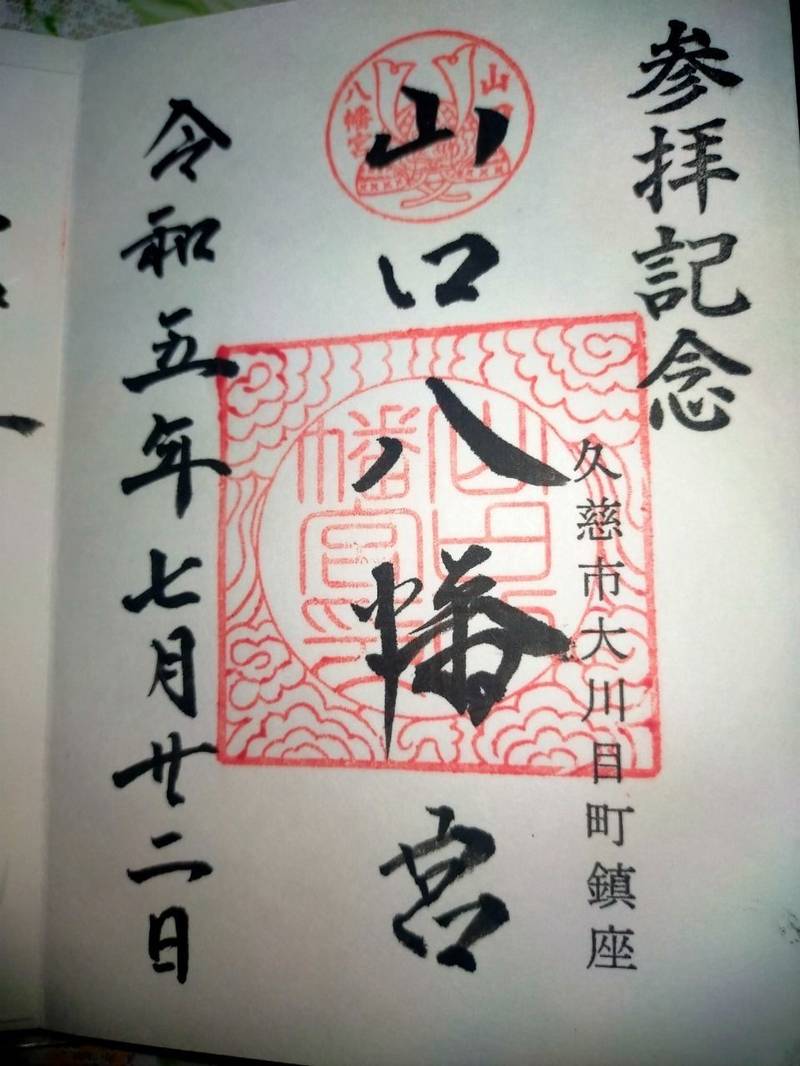 参拝記念
久慈市大川目町鎮座
山口八幡宮
山口
八幡宮
令和五年七月廿二日